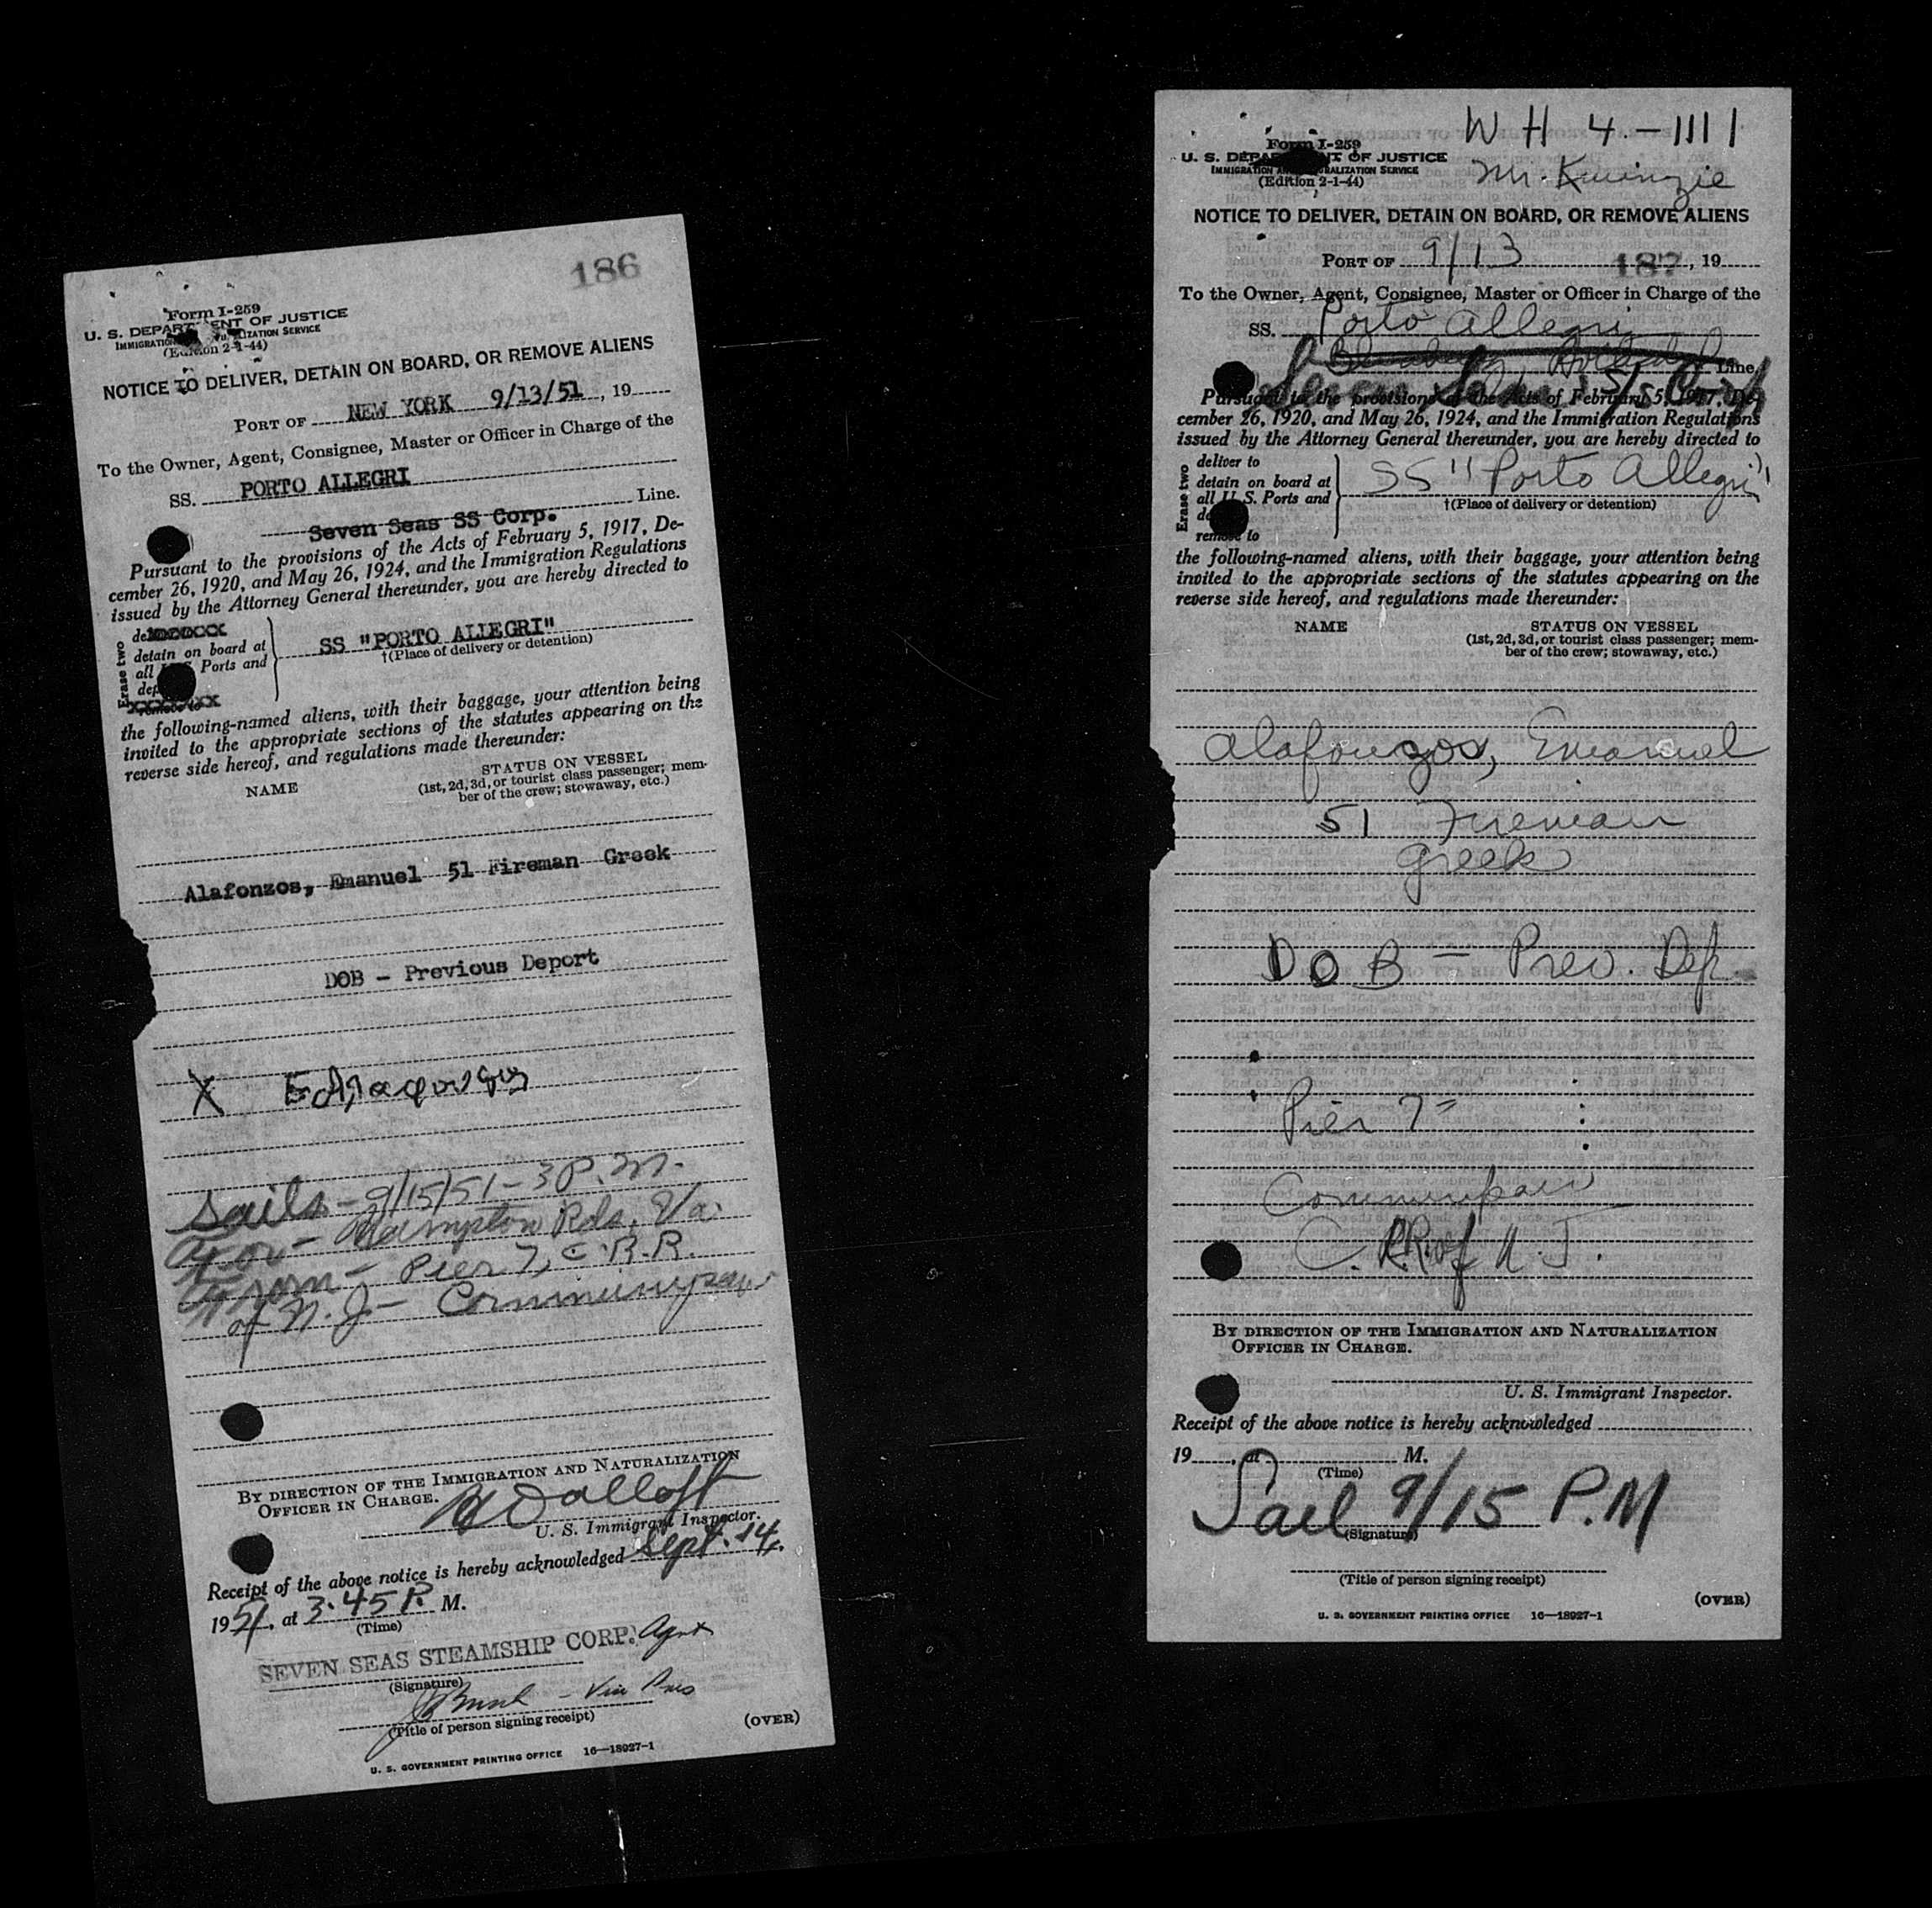 186
Form I-259
U. S. DEPARTMENT OF JUSTICE
IMMIGRATION NATURALIZATION SERVICE
(Edition 2-1-44)
NOTICE TO DELIVER, DETAIN ON BOARD, OR REMOVE ALIENS
PORT OF NEW YORK 9/13/51, 19
To the Owner, Agent, Consignee, Master or Officer in Charge of the
SS. PORTO ALLEGRI
Line.
Seven Seas SS Corp.
Pursuant to the provisions of the Acts of February 5, 1917, De-
cember 26, 1920, and May 26, 1924, and the Immigration Regulations
issued by the Attorney General thereunder, you are hereby directed to
Erase two
detain on board at
all U.S. Ports and
SS "PORTO ALLEGRI"
†(Place of delivery or detention)
remove to
the following-named aliens, with their baggage, your attention being
invited to the appropriate sections of the statutes appearing on the
reverse side hereof, and regulations made thereunder:
NAME
STATUS ON VESSEL
(1st, 2d, 3d, or tourist class passenger; mem-
ber of the crew; stowaway, etc.)
Alafonzos, Emanuel 51 Fireman Greek
DOB - Previous Deport
X
Sails - 9/15/51 - 3 P.M.
For - Hampton Rds, Va.
From - Pier 7, C.R.R.
of N.J. - Communipaw
BY DIRECTION OF THE IMMIGRATION AND NATURALIZATION
OFFICER IN CHARGE.
U. S. Immigrant Inspector.
Receipt of the above notice is hereby acknowledged Sept. 14,
1951, at 3.45 P. M.
(Time)
SEVEN SEAS STEAMSHIP CORP. Agent
(Signature)
(Title of person signing receipt)
(OVER)
U. S. GOVERNMENT PRINTING OFFICE 16—18927-1
WH 4-1111
Form I-259
U. S. DEPARTMENT OF JUSTICE
Mr.
IMMIGRATION AND NATURALIZATION SERVICE
(Edition 2-1-44)
NOTICE TO DELIVER, DETAIN ON BOARD, OR REMOVE ALIENS
PORT OF 9/13 187, 19
To the Owner, Agent, Consignee, Master or Officer in Charge of the
SS. Porto Allegri
Line.
Seven Seas S/S Corp
Pursuant to the provisions of the Acts of February 5, 1917, De-
cember 26, 1920, and May 26, 1924, and the Immigration Regulations
issued by the Attorney General thereunder, you are hereby directed to
Erase two
deliver to
detain on board at
all U.S. Ports and
SS "Porto Allegri"
†(Place of delivery or detention)
remove to
the following-named aliens, with their baggage, your attention being
invited to the appropriate sections of the statutes appearing on the
reverse side hereof, and regulations made thereunder:
NAME
STATUS ON VESSEL
(1st, 2d, 3d, or tourist class passenger; mem-
ber of the crew; stowaway, etc.)
Alafouzos, Emanuel
51 Fireman
Greek
DOB - Prev. Dep.
Pier 7
Communipaw
C. R.R. of N.J.
BY DIRECTION OF THE IMMIGRATION AND NATURALIZATION
OFFICER IN CHARGE.
U. S. Immigrant Inspector.
Receipt of the above notice is hereby acknowledged
19, at M.
(Time)
Sail 9/15 P.M
(Signature)
(Title of person signing receipt)
(OVER)
U. S. GOVERNMENT PRINTING OFFICE 16—18927-1